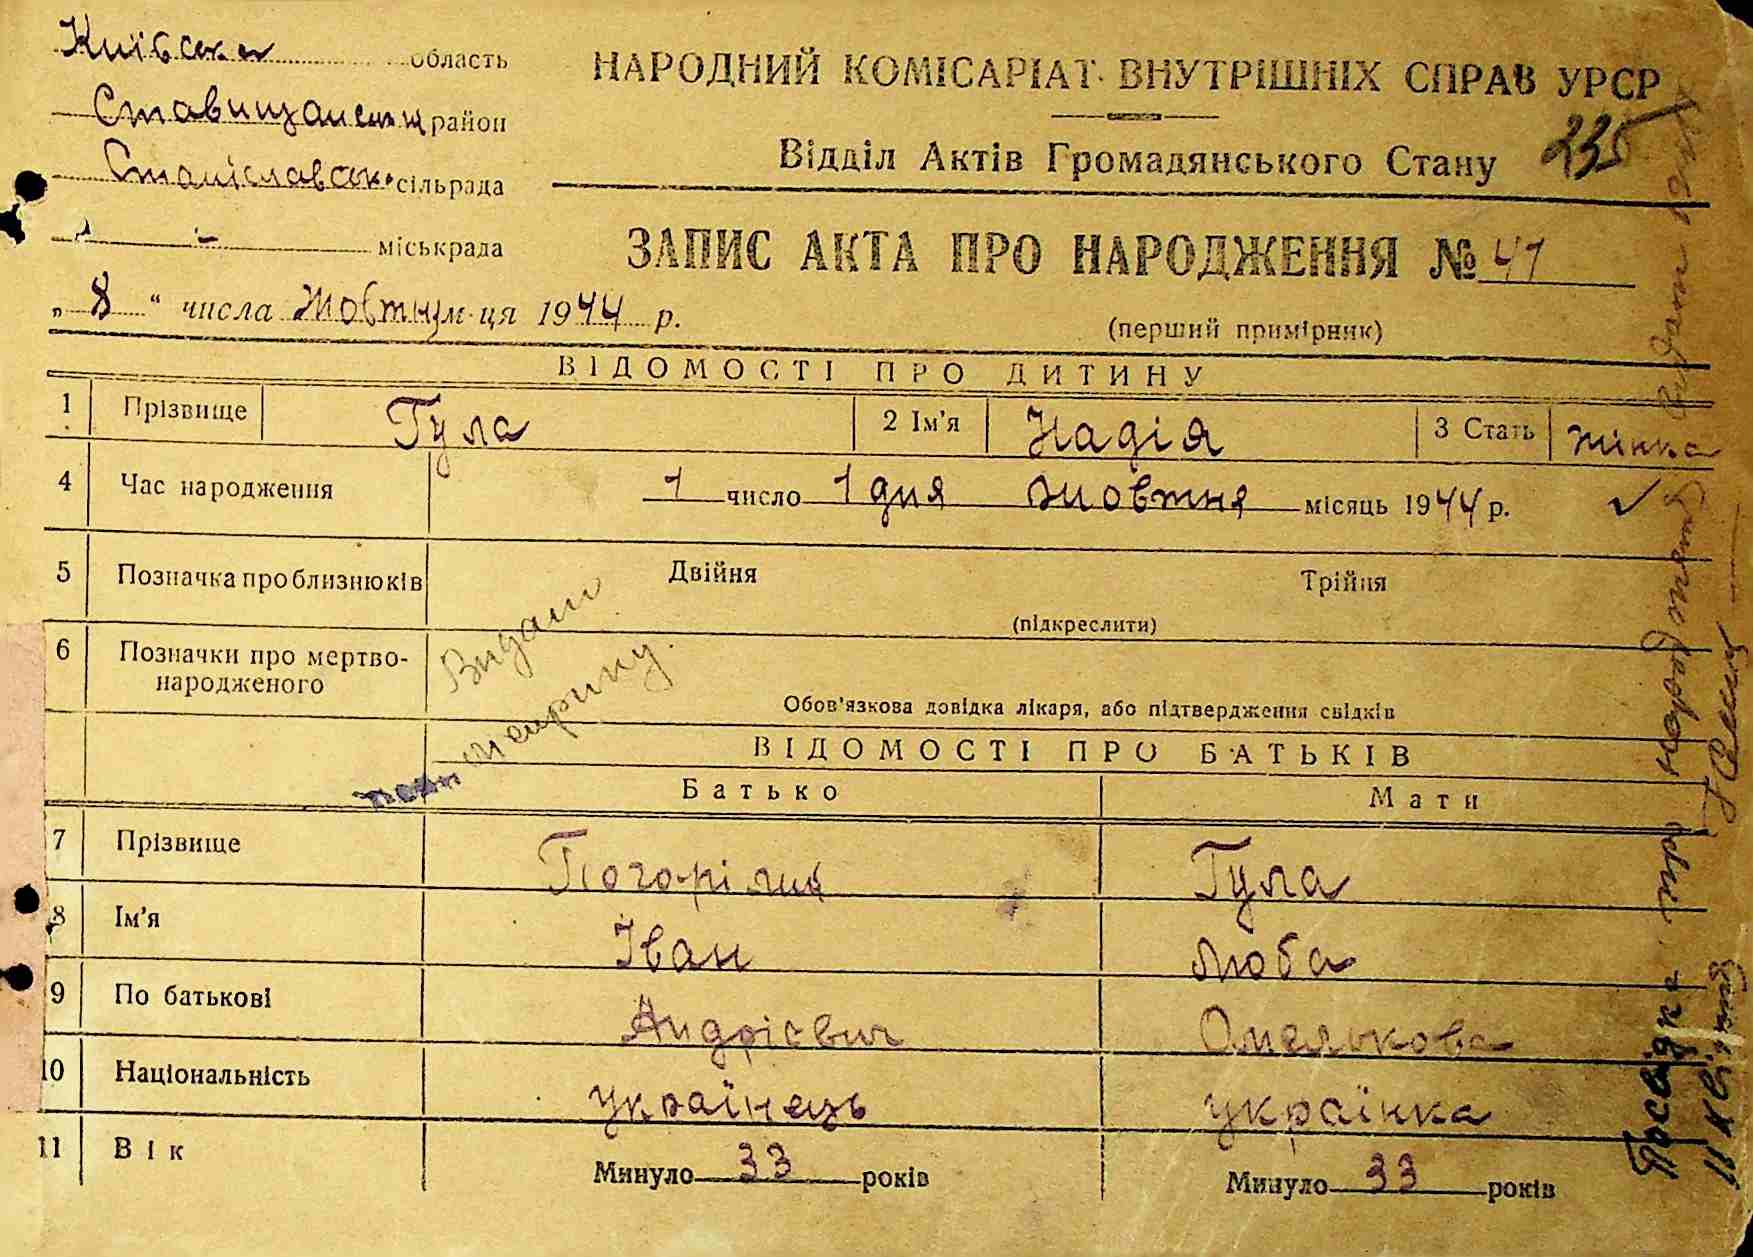 Київська область
Ставищанськ район
Станіславськ. сільрада
- міськрада
НАРОДНИЙ КОМІСАРІАТ ВНУТРІШНІХ СПРАВ УРСР
Відділ Актів Громадянського Стану 235
ЗАПИС АКТА ПРО НАРОДЖЕННЯ № 41
„ 8 “ числа Жовтня м-ця 1944 р.
(перший примірник)
ВІДОМОСТІ ПРО ДИТИНУ
1 Прізвище Гула 2 Ім'я Надія 3 Стать жінка
4 Час народження 1 число 1 дня жовтня місяць 1944 р. ✓
5 Позначка про близнюків Двійня Трійня
(підкреслити)
6 Позначки про мертво-
народженого
Обов'язкова довідка лікаря, або підтвердження свідків
Видано
ВІДОМОСТІ ПРО БАТЬКІВ
Батько Мати
7 Прізвище Погорілий Гула
8 Ім'я Іван Люба
9 По батькові Андрієвич Омелькова
10 Національність українець українка
11 Вік Минуло 33 років Минуло 33 років
Посвідка про народження видати
11 квітня